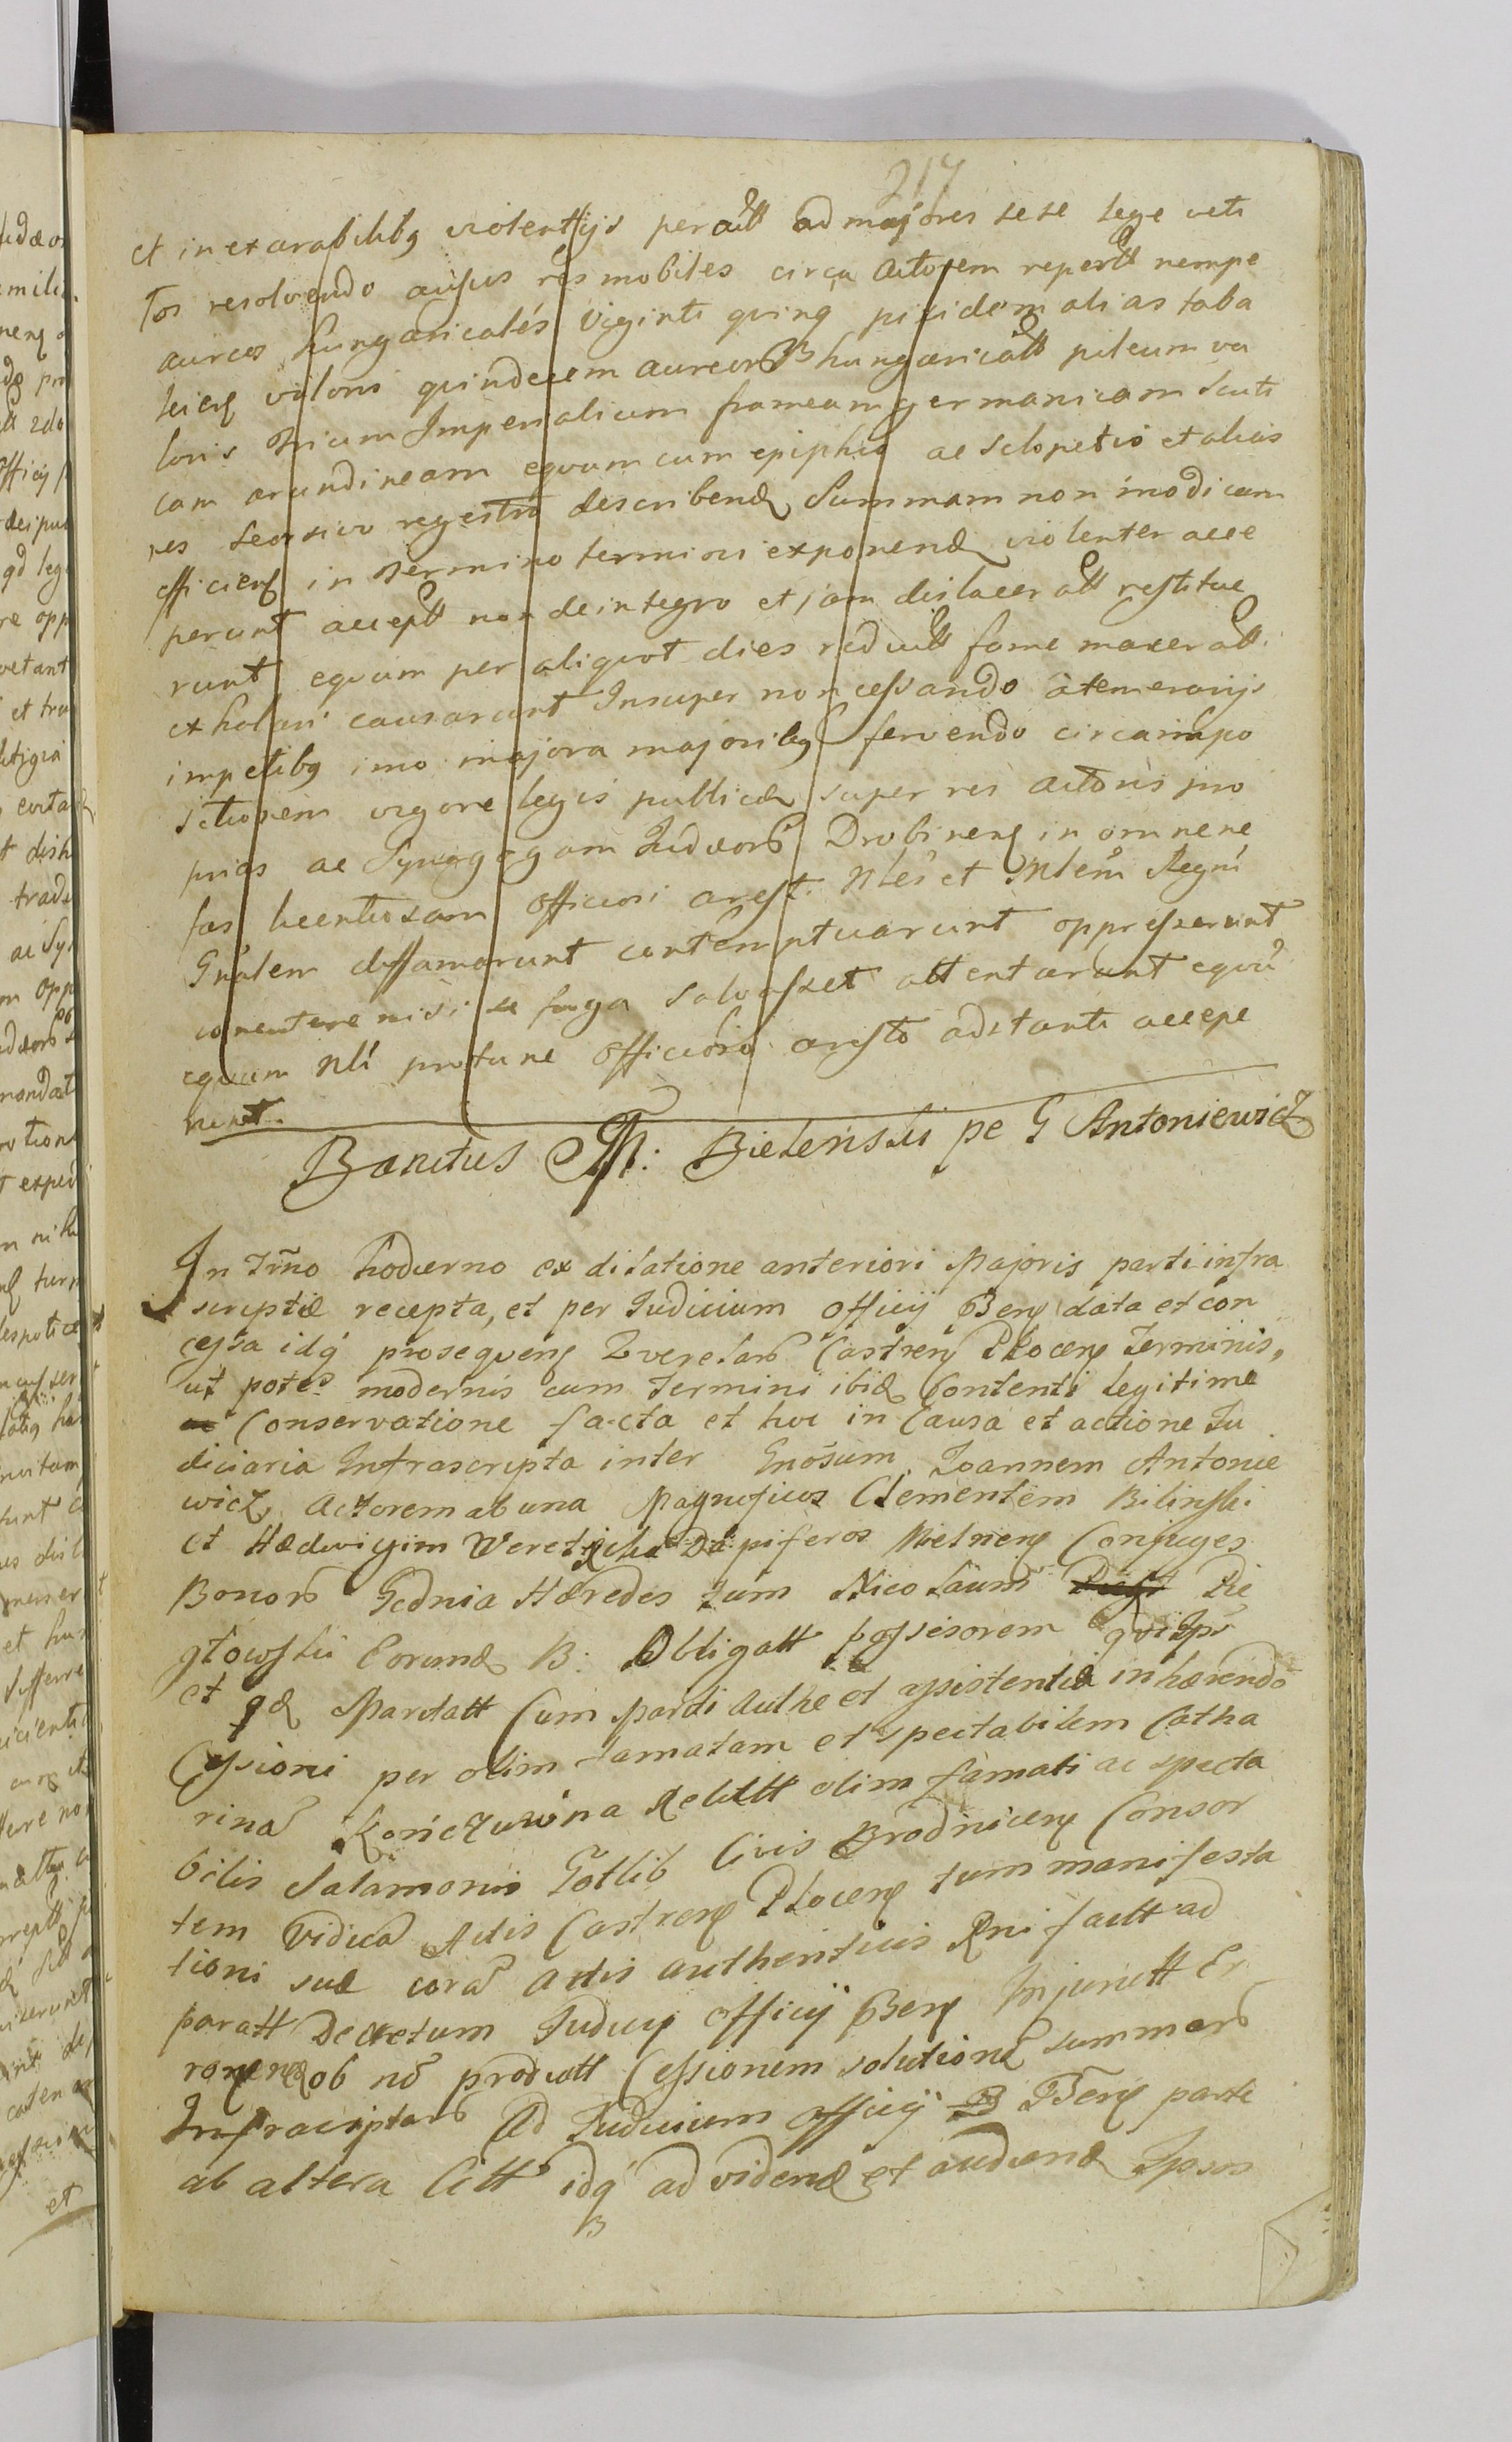 217
et inexarabilibq violentijs peractt ad majores sese lege veti
tos resolvendo ausus res mobiles circa Actorem repertt nempe
aureos hungaricales viginti qvinq pixidem alias taba
kierę valoris qvindecem aureorб hungaricatt pileum va
loris trium Imperialium frameam germanicam scuti
cam arundineam eqvum cum epiphio ac sclopetis et alias
res seorsivo regestro describenđ Summam non modicam
efficienę in termino termini exponenđ violenter acce
perunt acceptt non de integro et jam dislaceratt restitue
runt eqvum per aliqvot dies reductt fame maceratt
exholari causarunt Insuper non cessando a temerarijs
impetibq imo majora majoribq fervendo circa impo
sitionem vigore legis publicæ super res Actoris pro
prias ac Synagogam Judæorб Drobinenę in omne ne
fas licentiosam officiosi arest. Nlei et Mlem Regni
Gnalem diffamarunt contemptuarunt oppresserunt
conentere nisi se fuga salvasset attentarunt eqvu
eqvum Nli protunc officioso aresto adstanti accepe
runt.
Banitus M: Bielenski pe G Antoniewicz
In Trno hodierno ex dilatione anteriori Majoris parti infra
scriptæ recepta, et per Judicium officij Benę data et con
cessa idq prosequenę Querelarб Castrenę Plocenę Terminis,
ut pote modernis cum Termini ibiđ Contenti legitime
Conservatione facta et hoc in Causa et actione Ju
diciaria Infrascripta inter Gnosum Joannem Antonie
wicz Actorem ab una Magnificos Clementem Bilinski
et Hædvigim Weretycha Dapiferos Mielnenę Conjuges
Bonorб Gednia Hæredes tum Nicolaum Pie
głowski Eorunđ B: Obligatt possesorem qvi Ips
et qđ Maritatt Cum Mariti Authe et assistentia inhærendo
Cessioni per olim famatam et spectabilem Catha
rina Koniczuwna Relictt olim famati ac specta
bilis Salamonis Gotlib Civis Brodnicenę Consor
tem Viduca Actis Castrenę Plocenę tum manifesta
tioni suæ cora Actis authenticis Rni factt ad
paratt Decretum Judicij officij Benę Injunctt Er
ronenđ ob no productt Cessionem solutione summarб
Infrascriptarб Ad Judicium officij Benę parte
ab altera Citt idq ad videnđ et audienđ Ipsos